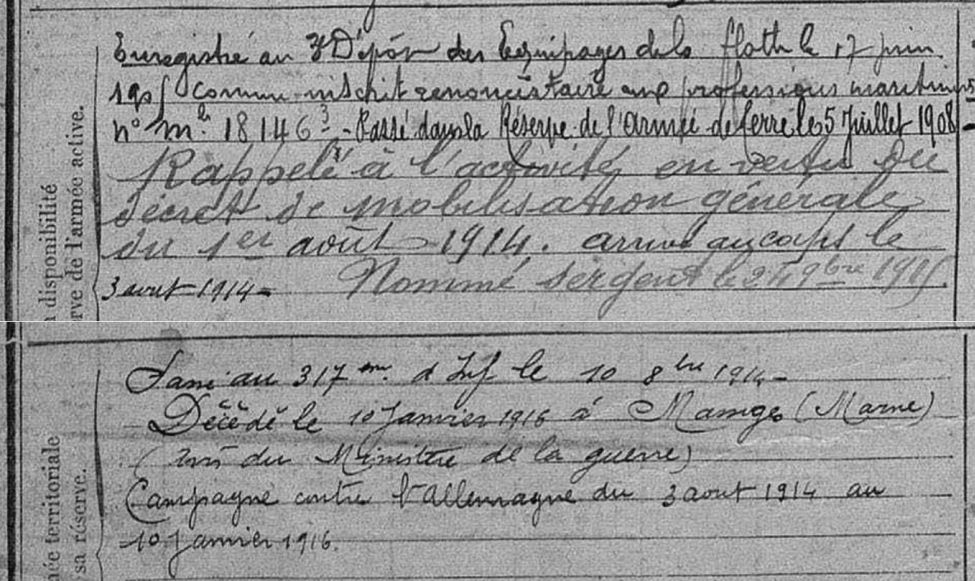 Enregistré au 3e Dépôt des Equipages de la flotte le 17 juin
1905 comme inscrit renonciataire aux professions maritimes
n° mle 18146-3 - Passé dans la Réserve de l'Armée de terre le 5 Juillet 1908 -
Rappelé à l'activité en vertu du
décret de mobilisation générale
du 1er août 1914. arrivé au corps le
3 aout 1914 - Nommé sergent le 24 9bre 1915.
n disponibilité
rve de l'armée active.
Passé au 317me d'Inf le 10 8bre 1914 -
Décédé le 10 Janvier 1916 à (Marne)
(Avis du Ministère de la guerre)
Campagne contre l'Allemagne du 3 aout 1914 au
10 Janvier 1916.
ée territoriale
sa réserve.